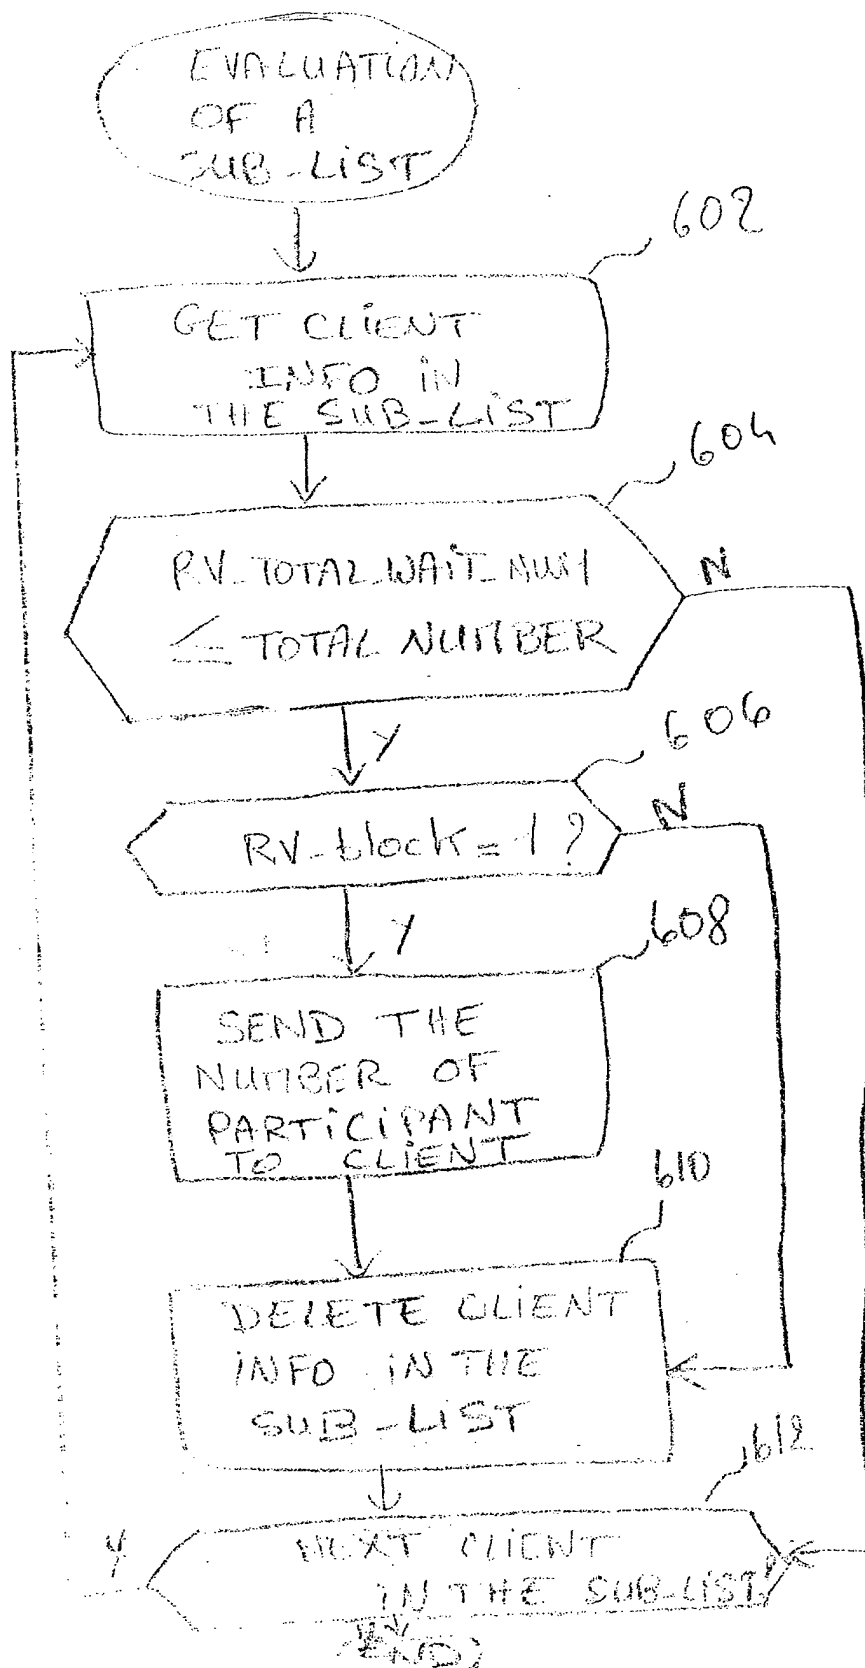 EVALUATION
OF A
SUB-LIST
602
GET CLIENT
INFO IN
THE SUB-LIST
604
RV-TOTAL-WAIT-NUM
≤ TOTAL NUMBER
N
Y
606
RV-block = 1 ?
N
Y
608
SEND THE
NUMBER OF
PARTICIPANT
TO CLIENT
610
DELETE CLIENT
INFO IN THE
SUB-LIST
612
Y
NEXT CLIENT
IN THE SUB-LIST?
N
END